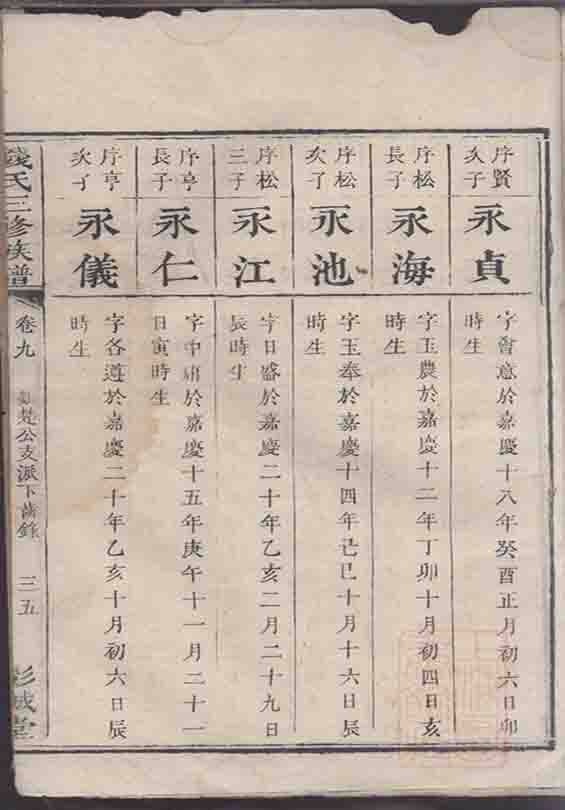 序賢
次子
永貞
字會意於嘉慶十八年癸酉正月初六日卯
時生
序松
長子
永海
字玉農於嘉慶十二年丁卯十月初四日亥
時生
序松
次子
永池
字玉奉於嘉慶十四年己巳十月十六日辰
時生
序松
三子
永江
字日盛於嘉慶二十年乙亥二月二十九日
辰時生
序亨
長子
永仁
字中 於嘉慶十五年庚午十一月二十一
日寅時生
序亨
次子
永儀
字各遵於嘉慶二十年乙亥十月初六日辰
時生
錢氏三修族譜
卷九
楚公支派下齒錄
三五
彭城堂